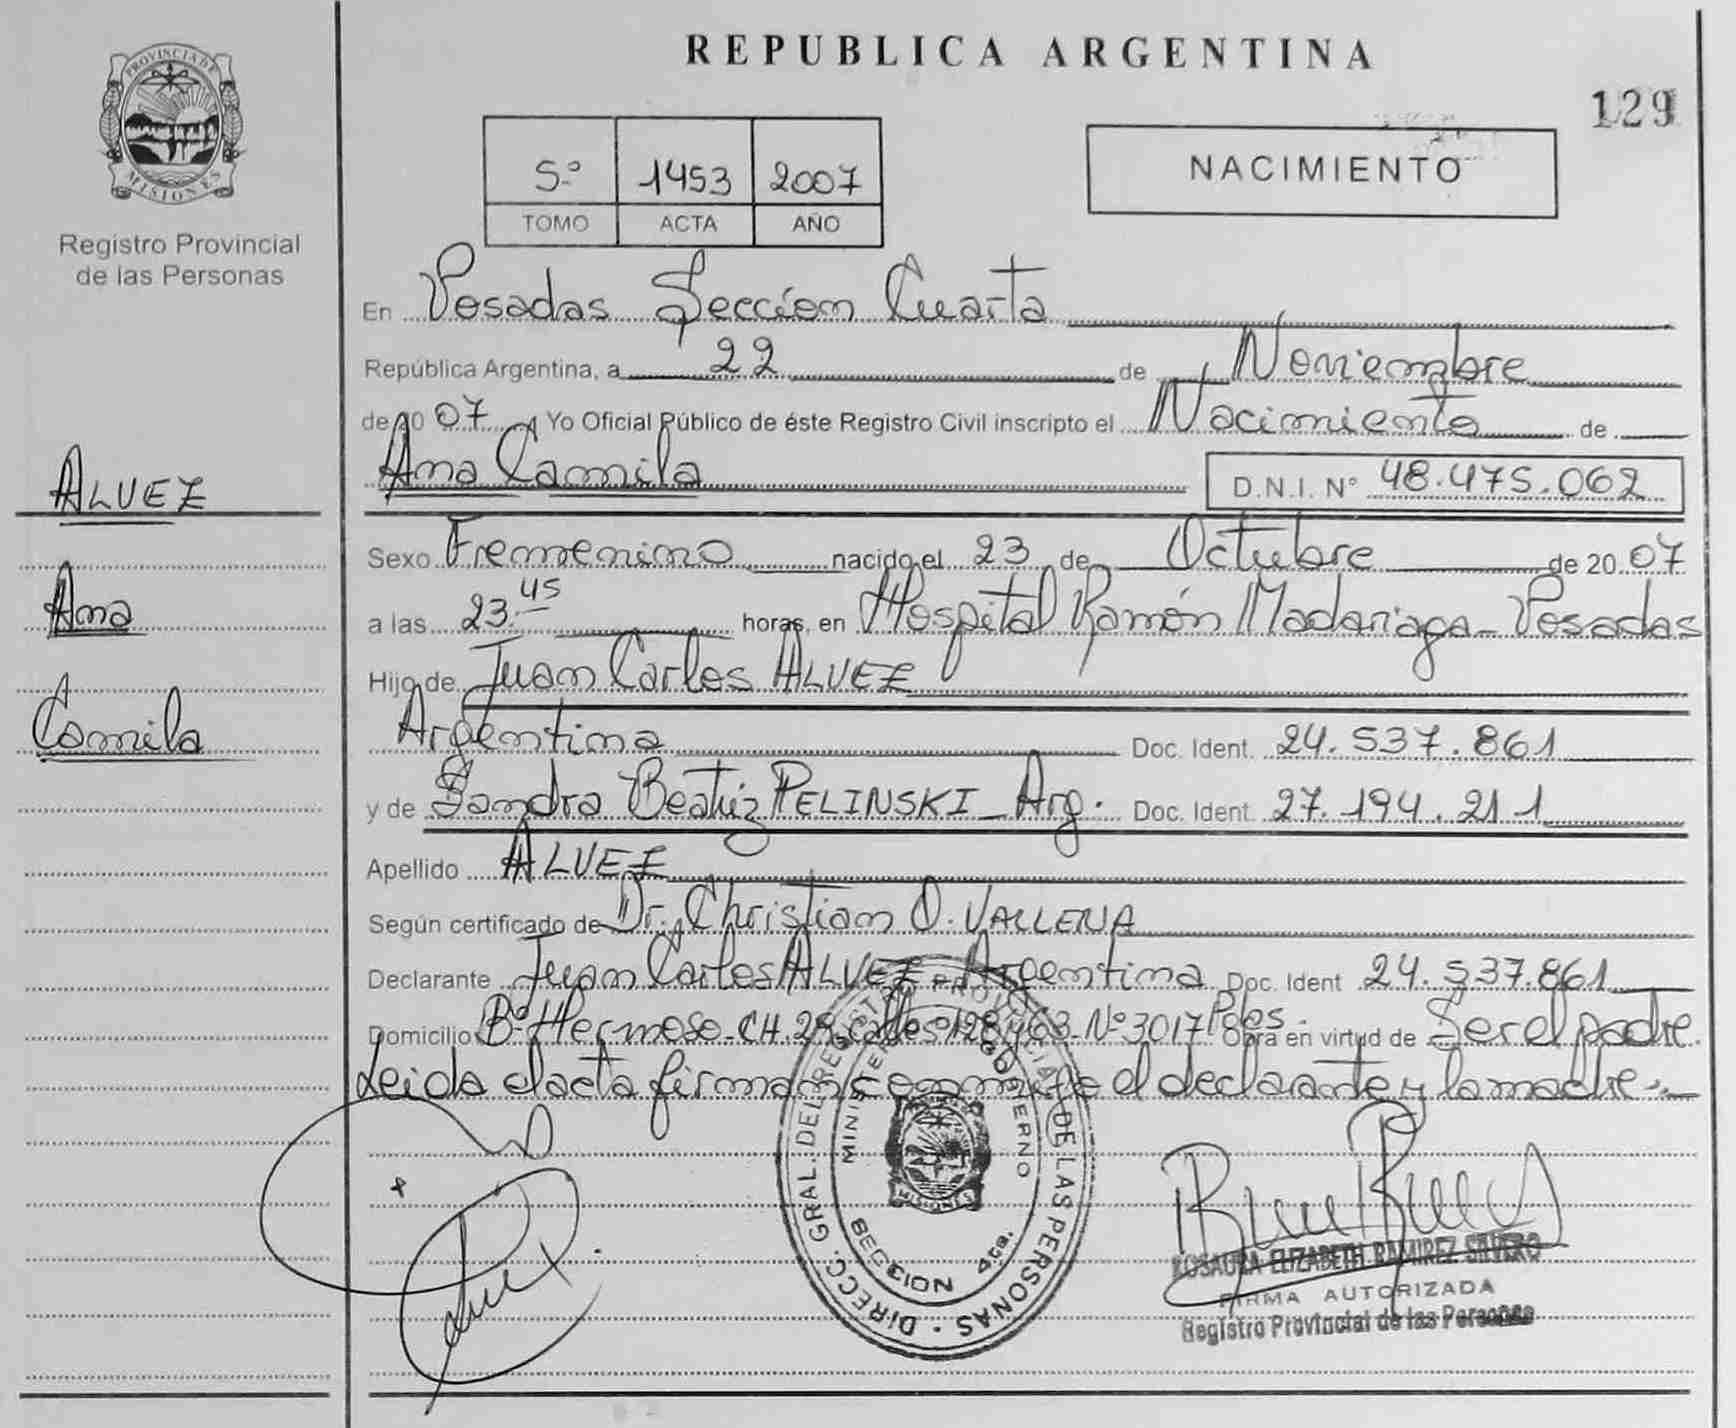 PROVINCIA DE
MISIONES
Registro Provincial
de las Personas
ALVEZ
Ana
Camila
REPUBLICA ARGENTINA
129
5º 1453 2007
TOMO ACTA AÑO
NACIMIENTO
En Posadas Sección Cuarta
República Argentina, a 22 de Noviembre
de 2007 Yo Oficial Público de éste Registro Civil inscripto el Nacimiento de
Ana Camila D.N.I. Nº 48.475.062
Sexo Femenino nacido el 23 de Octubre de 2007
a las 23.45 horas, en Hospital Ramón Madariaga - Posadas
Hijo de Juan Carlos ALVEZ
Argentina Doc. Ident. 24.537.861
y de Sandra Beatriz PELINSKI - Arg. Doc. Ident. 27.194.211
Apellido ALVEZ
Según certificado de Dr. Christian O. VALLENA
Declarante Juan Carlos ALVEZ - Argentina Doc. Ident 24.537.861
Domicilio Bº Hermoso - CH. 29 calles 128 y 63 - Nº 3017 Pdas. Obra en virtud de Ser el padre.
Leida el acta firman conmigo el declarante y la madre -
DIRECC. GRAL. DEL REGISTRO PROVINCIAL DE LAS PERSONAS
MINISTERIO DE GOBIERNO
MISIONES
SECCION 4ta.
ROSAURA ELIZABETH RAMIREZ SILVERO
FIRMA AUTORIZADA
Registro Provincial de las Personas